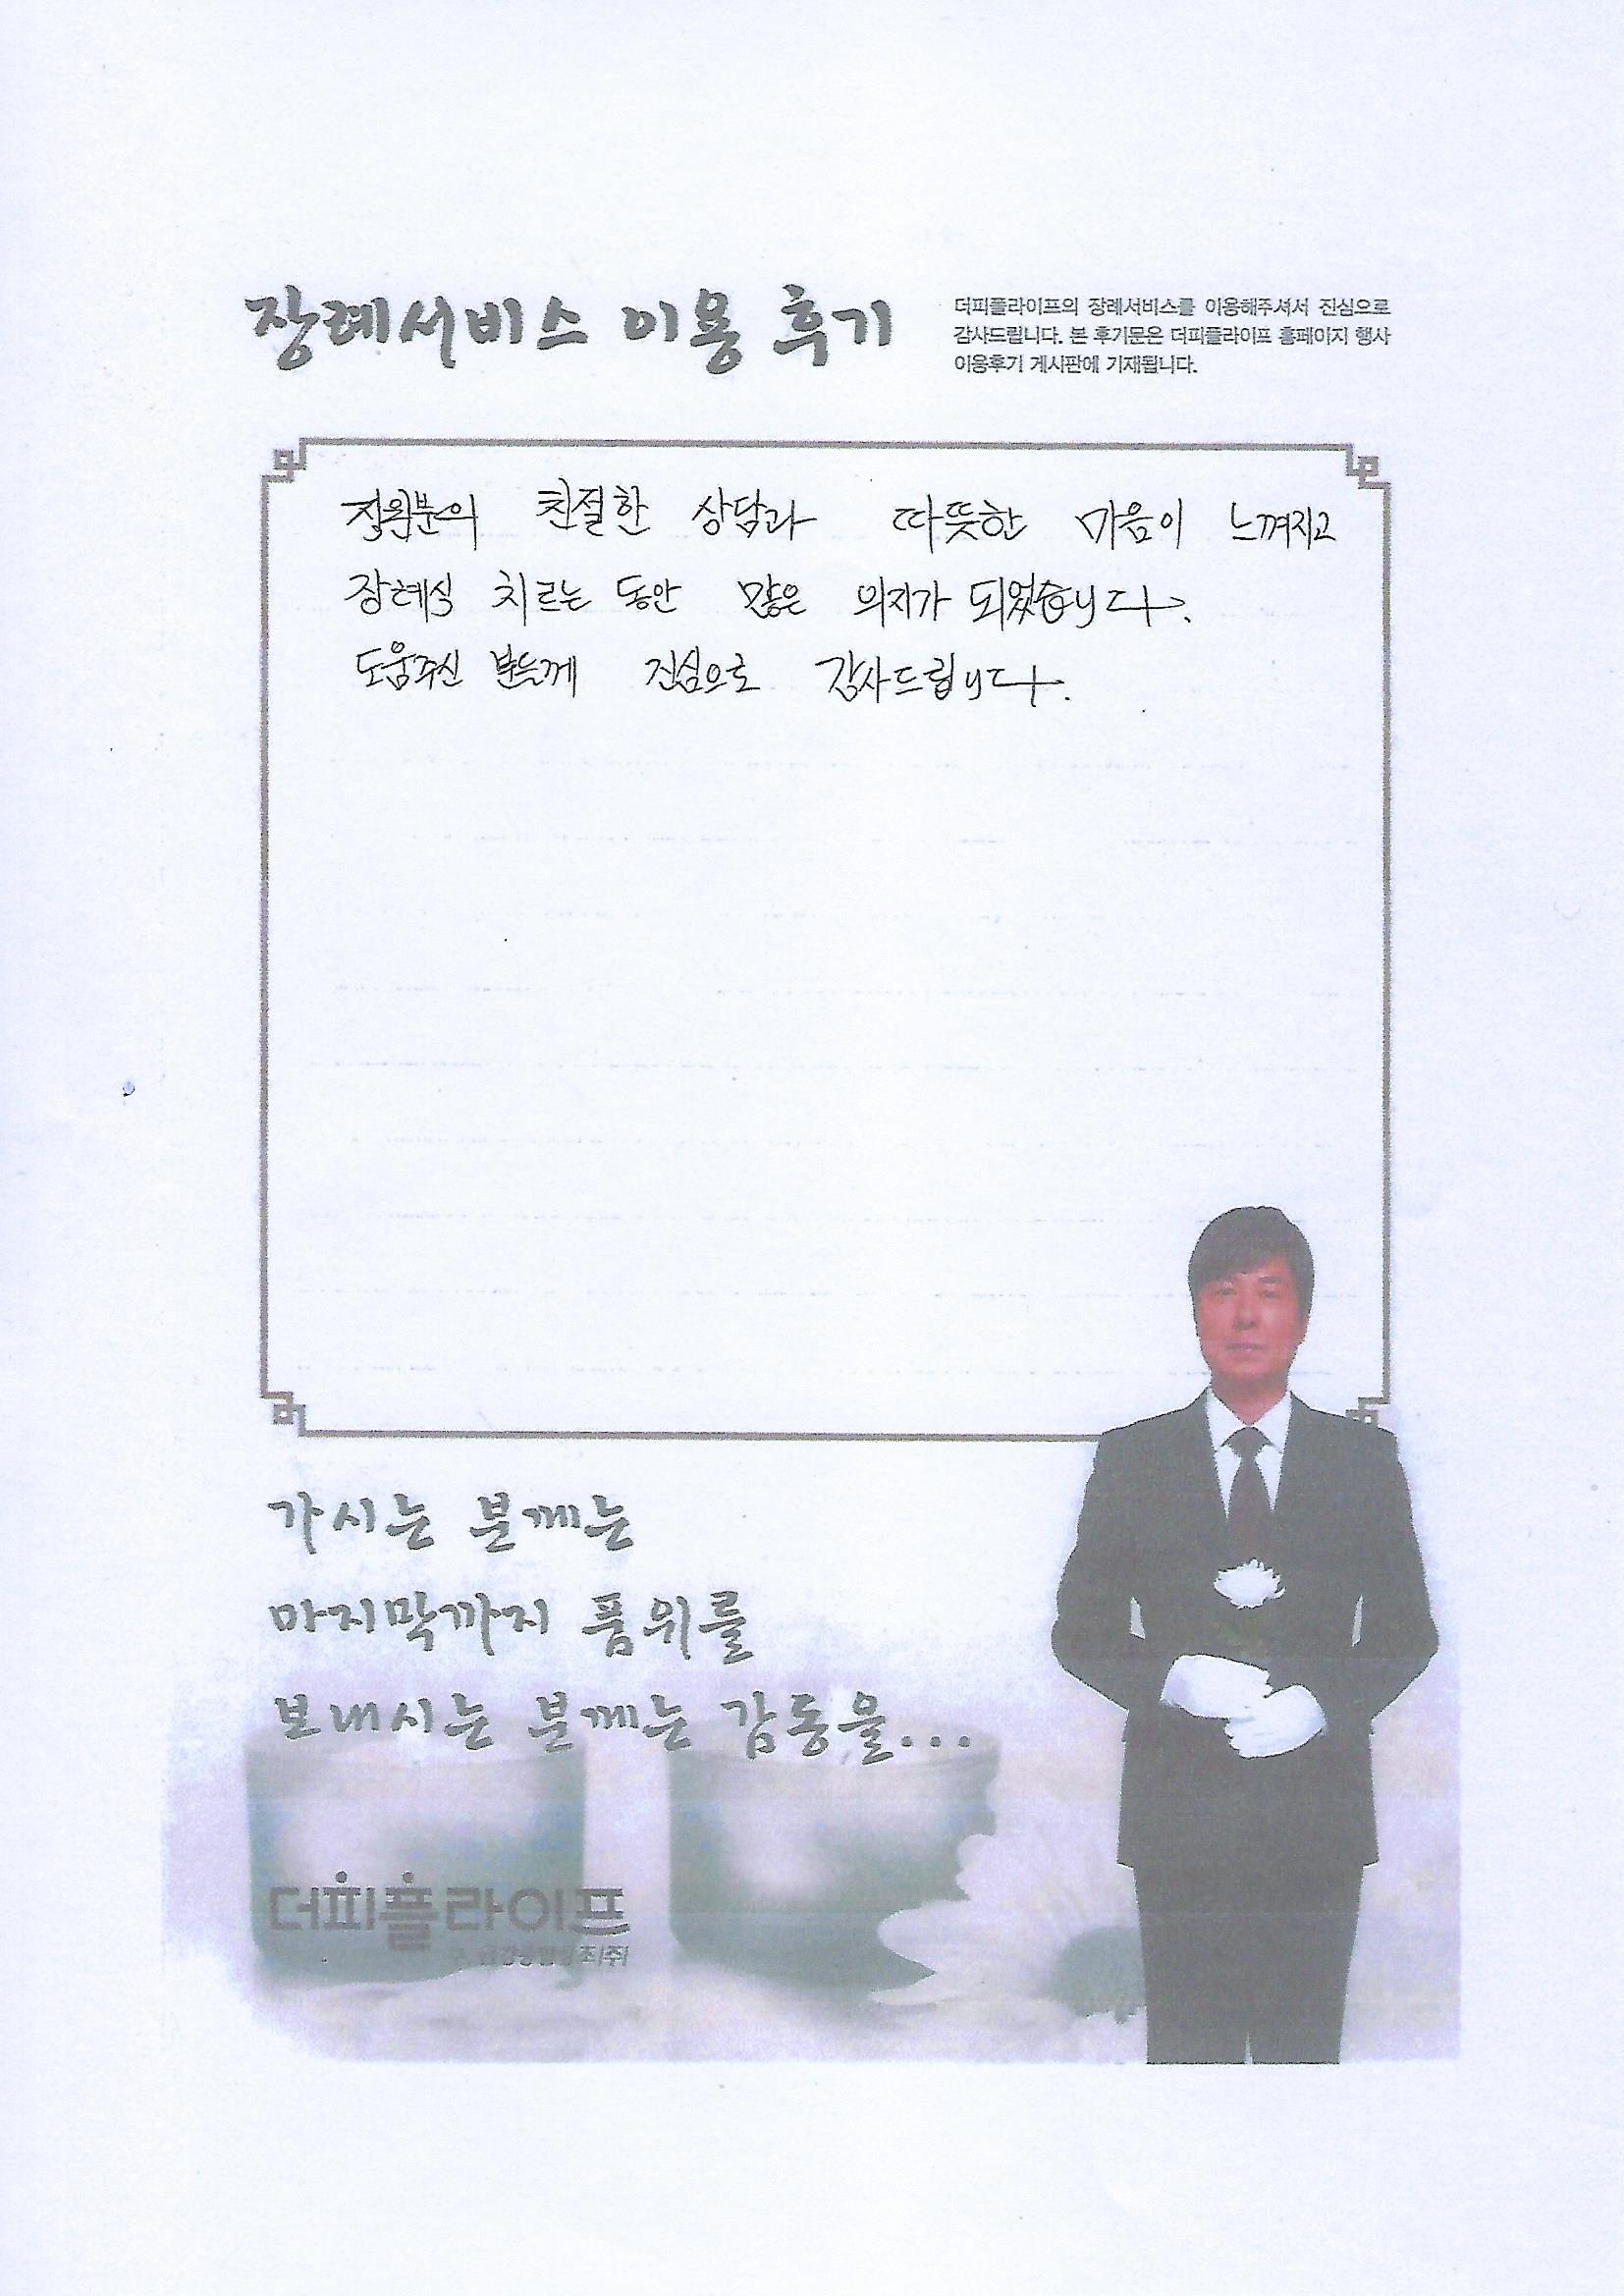 장례서비스 이용 후기
더피플라이프의 장례서비스를 이용해주셔서 진심으로
감사드립니다. 본 후기문은 더피플라이프 홈페이지 행사
이용후기 게시판에 기재됩니다.
직원분의 친절한 상담과 따뜻한 마음이 느껴지고
장례식 치르는 동안 많은 의지가 되었습니다.
도움주신 분들께 진심으로 감사드립니다.
가시는 분께는
마지막까지 품위를
보내시는 분께는 감동을...
더피플라이프